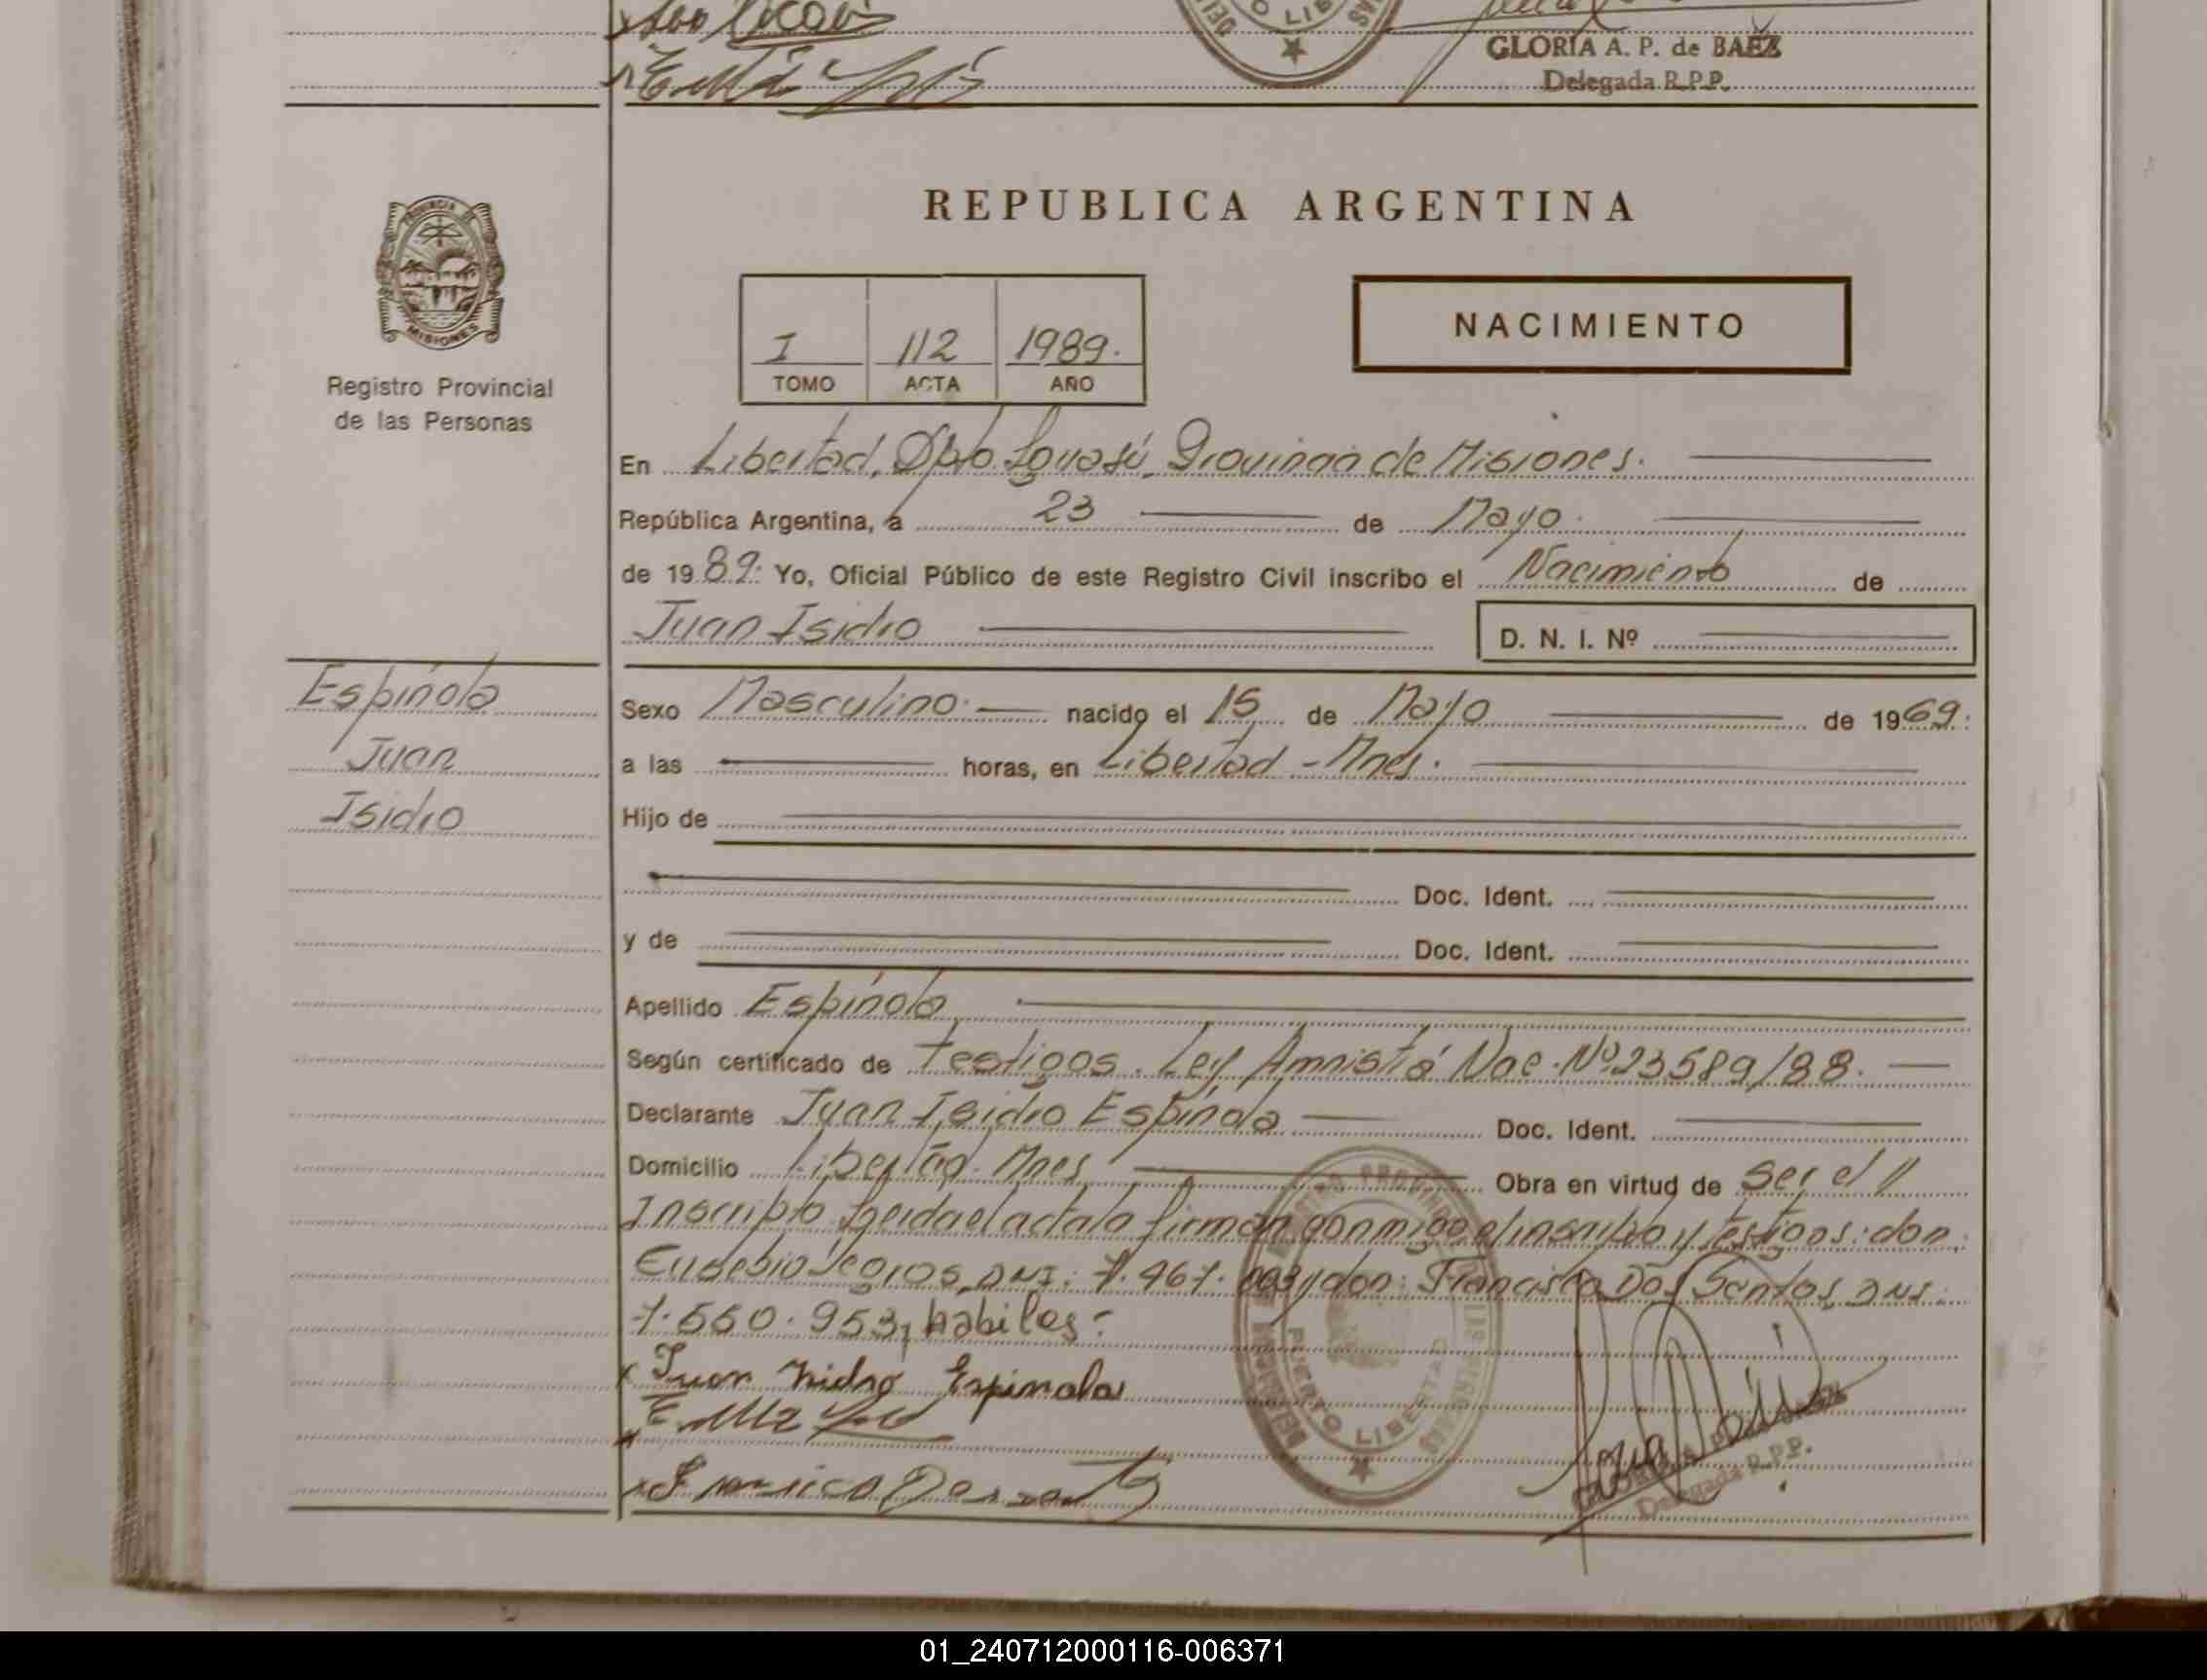 GLORIA A. P. de BAEZ
Delegada R.P.P.
PROVINCIA DE
MISIONES
Registro Provincial
de las Personas
REPUBLICA ARGENTINA
I 112 1989.
TOMO ACTA AÑO
NACIMIENTO
En Libertad, Dpto. Iguazú, Provincia de Misiones.
República Argentina, a 23 de Mayo.
de 1989. Yo, Oficial Público de este Registro Civil inscribo el Nacimiento de
Juan Isidro
D. N. I. Nº
Espínola
Juan
Isidro
Sexo Masculino. nacido el 15 de Mayo de 1969.
a las horas, en Libertad - Mnes.
Hijo de
Doc. Ident.
y de Doc. Ident.
Apellido Espínola
Según certificado de Testigos. Ley Amnistía Nac. Nº 23589/88.
Declarante Juan Isidro Espínola Doc. Ident.
Domicilio Libertad. Mnes. Obra en virtud de Ser el
Inscripto. Leida el acta la firman conmigo el inscripto y testigos: don
Eusebio DNI: 7.467. y don: Francisco Dos Santos, DNI:
7.550.953, habiles:
Juan Espinola
PUERTO LIBERTAD
GLORIA A.
Delegada R.P.P.
01_240712000116-006371